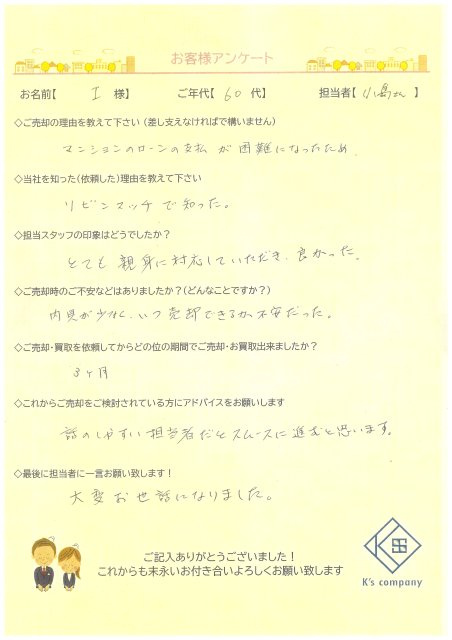 お客様アンケート
お名前【 I 様】 ご年代【 60 代】 担当者【 小島さん 】
◇ご売却の理由を教えて下さい（差し支えなければで構いません）
マンションのローンの支払が困難になったため
◇当社を知った（依頼した）理由を教えて下さい
リビンマッチで知った。
◇担当スタッフの印象はどうでしたか？
とても親身に対応していただき、良かった。
◇ご売却時のご不安などはありましたか？（どんなことですか？）
内見が少なく、いつ売却できるか不安だった。
◇ご売却・買取を依頼してからどの位の期間でご売却・お買取出来ましたか？
3ヶ月
◇これからご売却をご検討されている方にアドバイスをお願いします
話のしやすい担当者だとスムースに進むと思います。
◇最後に担当者に一言お願い致します！
大変お世話になりました。
ご記入ありがとうございました！
これからも末永いお付き合いよろしくお願い致します
K's company